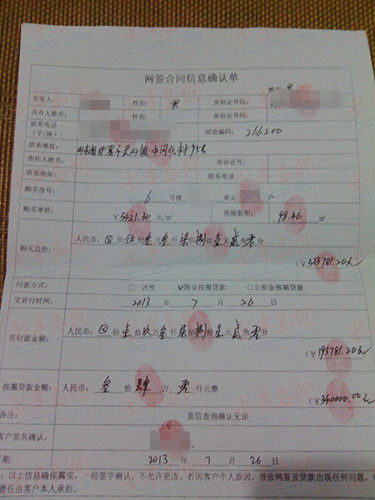 网签合同信息确认单
买受人: 性别: 男 身份证号码:
共有人姓名: 性别: 身份证号码:
联系电话
(手/座): 邮政编码: 266200
联系地址: 山东省即墨市灵山镇 95号
委托人姓名: 身份证号码:
联系地址: 联系电话
购房房号: 6 号楼 单元 户
购房单价: ¥5421.30 元/㎡ 房屋面积: 98.46 ㎡
购房总价: 人民币:⊗佰伍拾叁万叁仟柒佰捌拾壹元贰角零分
(¥533781.20元)
付款方式: □ 一次性 ☑商业按揭贷款 □公积金按揭贷款
交首付时间: 2013 年 7 月 26 日
首付款金额: 人民币:⊗佰壹拾玖万叁仟柒佰捌拾壹元贰角零分
(¥193781.20元)
按揭贷款金额: 人民币: 叁拾肆万零仟元整 (¥340000.00元)
备注: 真信查询确认无误
客户签名确认:
日期: 2013 年 7 月 26 日
:以上信息确保属实,一经签字确认,不允许更改,若因客户个人原因,导致网签及贷款出现任何问题,
责任由客户本人承担。